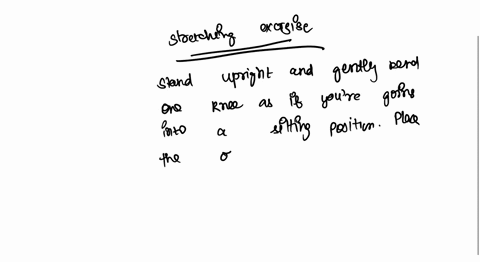 stretching exercise
stand upright and gently bend
one knee as if you're going
into a sitting position. Place
the o